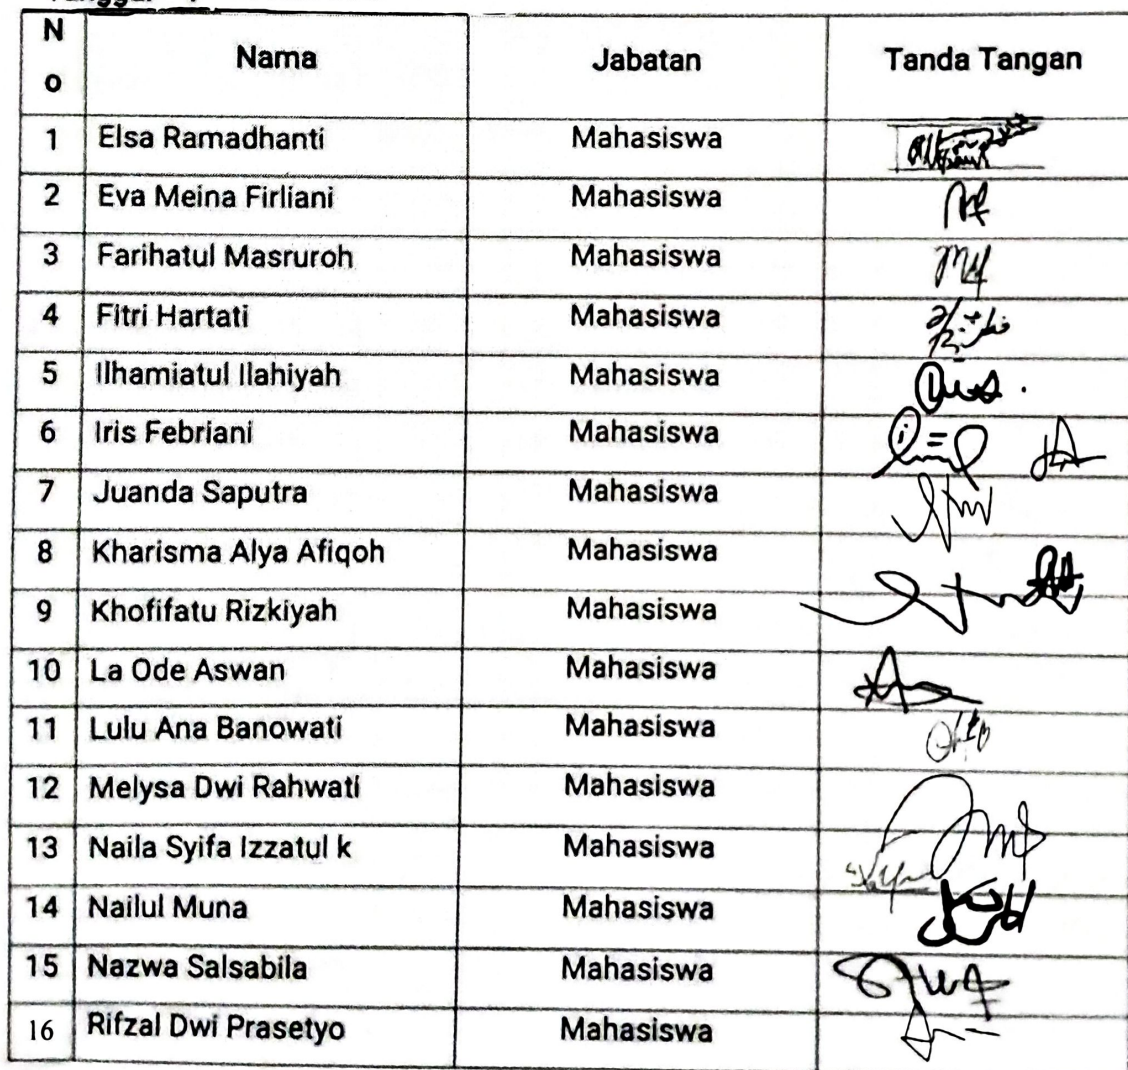 N
o Nama Jabatan Tanda Tangan
1 Elsa Ramadhanti Mahasiswa
2 Eva Meina Firliani Mahasiswa
3 Farihatul Masruroh Mahasiswa
4 Fitri Hartati Mahasiswa
5 Ilhamiatul Ilahiyah Mahasiswa
6 Iris Febriani Mahasiswa
7 Juanda Saputra Mahasiswa
8 Kharisma Alya Afiqoh Mahasiswa
9 Khofifatu Rizkiyah Mahasiswa
10 La Ode Aswan Mahasiswa
11 Lulu Ana Banowati Mahasiswa
12 Melysa Dwi Rahwati Mahasiswa
13 Naila Syifa Izzatul k Mahasiswa
14 Nailul Muna Mahasiswa
15 Nazwa Salsabila Mahasiswa
16 Rifzal Dwi Prasetyo Mahasiswa